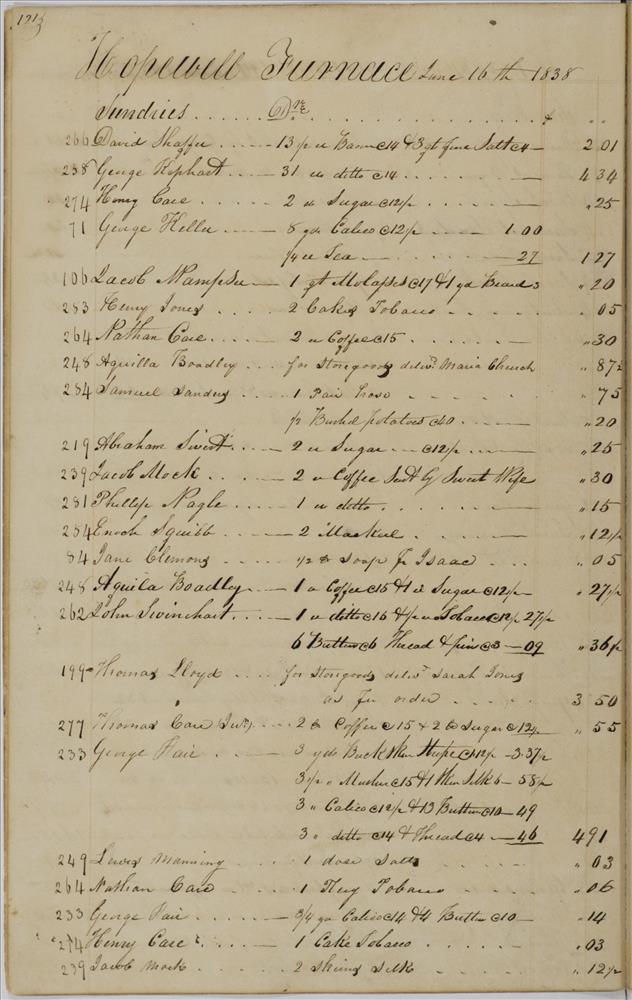 Hopewell Furnace June 16th 1838
Sundries . . . . . . Dr.
266 David Shaffer 13 1/2 Bacon @14 & 3 qt fine Salt @4 2 01
238 George Kephart 31 ditto @14 4 34
274 Henry Care 2 Sugar @12 1/2 " 25
71 George Keller 8 yds Calico @12 1/2 1.00
1/4 Tea 27 1 27
106 Jacob 1 qt Molasses @17 & 1 yd 3 " 20
283 Henry Jones 2 Cakes Tobacco " 05
264 Nathan Care 2 Coffee @15 " 30
248 Aquilla Boadley for Storegoods deliv'd Maria Church " 87 1/2
284 Samuel Sanders 1 Pair hose " 75
1/2 Bushel potatoes @40 " 20
219 Abraham Swert 2 Sugar @12 1/2 " 25
239 Jacob Mock 2 Coffee Sent by Swert Wife " 30
281 Phillip Nagle 1 ditto " 15
254 Enoch Squibb 2 Mackrel " 12 1/2
84 Jane Clemons 1/2 lb Soap Fr Isaac " 05
248 Aquila Boadley 1 Coffee @15 & 1 Sugar @12 1/2 " 27 1/2
262 John Swinehart 1 ditto @15 & 1/2 Tobacco @12 1/2 27 1/2
6 Buttons @6 Thread & pins @3 09 " 36 1/2
199 Thomas Lloyd for Storegoods deliv'd Sarah Jones
as per order 3 50
277 Thomas Care (Jur) 2 lb Coffee @15 & 2 lb Sugar @12 1/2 " 55
233 George Fair 3 yds Buckskin Stripe @12 1/2 3.37 1/2
3 1/2 " Muslin @15 & 1 Skn Silk 6 58 1/2
3 " Calico @12 1/2 & 13 Buttons @10 49
3 " ditto @14 & Thread @4 46 4 91
249 Lewis Manning 1 dose Salts " 03
264 Nathan Care 1 Plug Tobacco " 06
233 George Fair 3/4 yd Calico @14 & 4 Buttons @10 " 14
274 Henry Care 1 Cake Tobacco " 03
239 Jacob Mock 2 Skeins Silk " 12 1/2